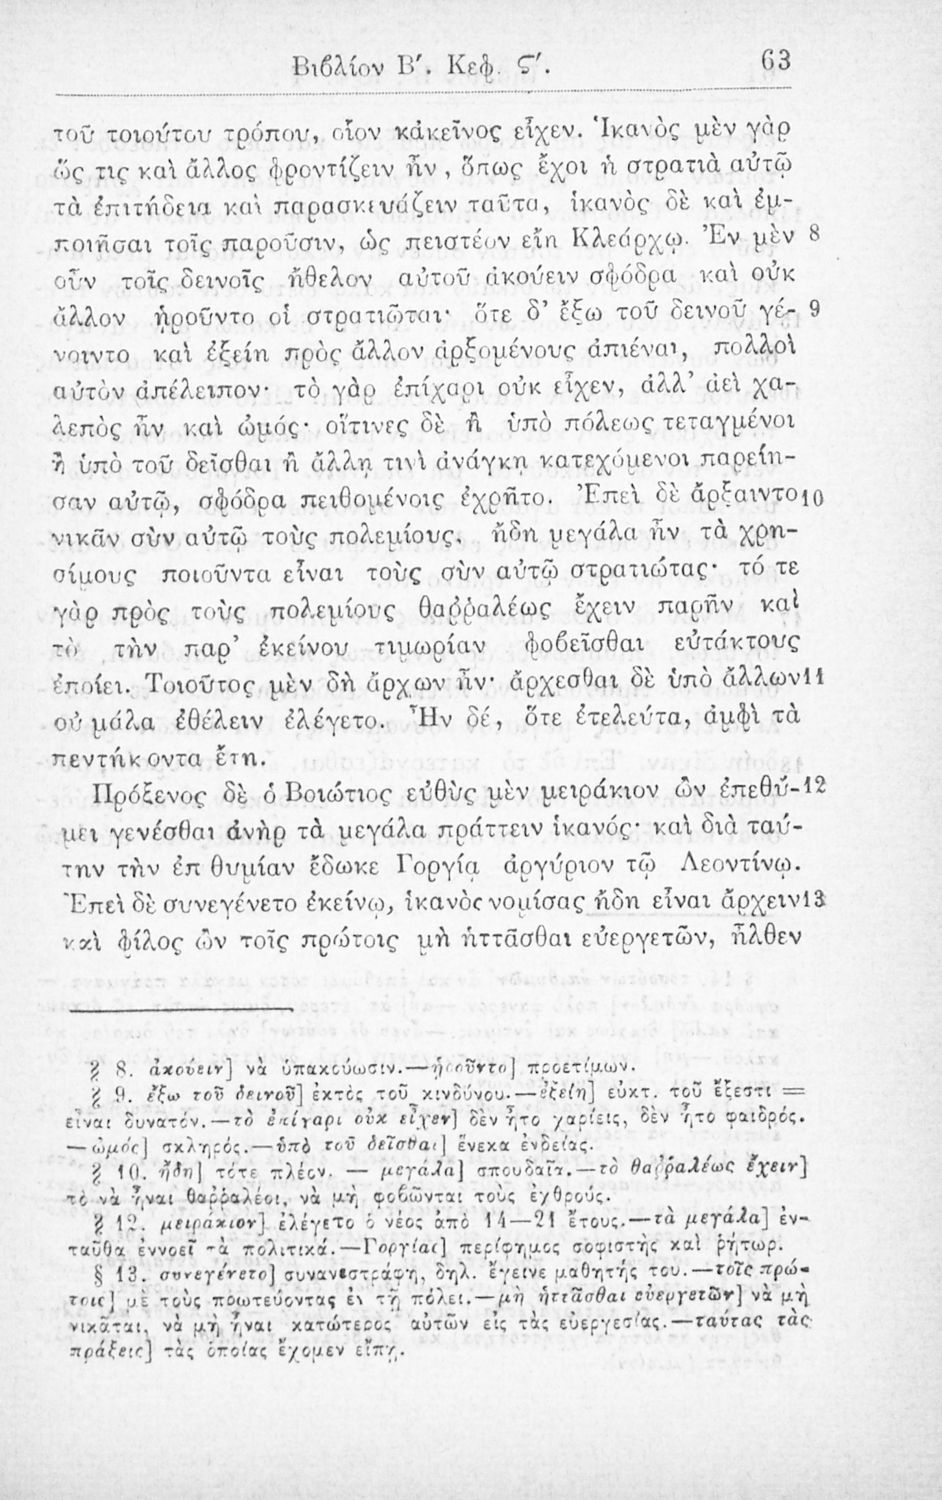 Βιβλίον Β′. Κεφ. Ϛ′. 63
τοῦ τοιούτου τρόπου, οἷον κἀκεῖνος εἶχεν. Ἱκανὸς μὲν γὰρ
ὥς τις καὶ ἄλλος φροντίζειν ἦν, ὅπως ἔχοι ἡ στρατιὰ αὐτῷ
τὰ ἐπιτήδεια καὶ παρασκευάζειν ταῦτα, ἱκανὸς δὲ καὶ ἐμ-
ποιῆσαι τοῖς παροῦσιν, ὡς πειστέον εἴη Κλεάρχῳ. Ἐν μὲν 8
οὖν τοῖς δεινοῖς ἤθελον αὐτοῦ ἀκούειν σφόδρα καὶ οὐκ
ἄλλον ᾑροῦντο οἱ στρατιῶται· ὅτε δ' ἔξω τοῦ δεινοῦ γέ- 9
νοιντο καὶ ἐξείη πρὸς ἄλλον ἀρξομένους ἀπιέναι, πολλοὶ
αὐτὸν ἀπέλειπον· τὸ γὰρ ἐπίχαρι οὐκ εἶχεν, ἀλλ' ἀεὶ χα-
λεπὸς ἦν καὶ ὠμός· οἵτινες δὲ ἢ ὑπὸ πόλεως τεταγμένοι
ἢ ὑπὸ τοῦ δεῖσθαι ἢ ἄλλῃ τινὶ ἀνάγκῃ κατεχόμενοι παρείη-
σαν αὐτῷ, σφόδρα πειθομένοις ἐχρῆτο. Ἐπεὶ δὲ ἄρξαιντο 10
νικᾶν σὺν αὐτῷ τοὺς πολεμίους, ἤδη μεγάλα ἦν τὰ χρη-
σίμους ποιοῦντα εἶναι τοὺς σὺν αὐτῷ στρατιώτας· τό τε
γὰρ πρὸς τοὺς πολεμίους θαῤῥαλέως ἔχειν παρῆν καὶ
τὸ τὴν παρ' ἐκείνου τιμωρίαν φοβεῖσθαι εὐτάκτους
ἐποίει. Τοιοῦτος μὲν δὴ ἄρχων ἦν· ἄρχεσθαι δὲ ὑπὸ ἄλλων 11
οὐ μάλα ἐθέλειν ἐλέγετο. Ἦν δέ, ὅτε ἐτελεύτα, ἀμφὶ τὰ
πεντήκοντα ἔτη.
Πρόξενος δὲ ὁ Βοιώτιος εὐθὺς μὲν μειράκιον ὢν ἐπεθύ- 12
μει γενέσθαι ἀνὴρ τὰ μεγάλα πράττειν ἱκανός· καὶ διὰ ταύ-
την τὴν ἐπ θυμίαν ἔδωκε Γοργίᾳ ἀργύριον τῷ Λεοντίνῳ.
Ἐπεὶ δὲ συνεγένετο ἐκείνῳ, ἱκανὸς νομίσας ἤδη εἶναι ἄρχειν 13
καὶ φίλος ὢν τοῖς πρώτοις μὴ ἡττᾶσθαι εὐεργετῶν, ἦλθεν
§ 8. ἀκούειν] νὰ ὑπακούωσιν.—ᾑροῦντο] προετίμων.
§ 9. ἔξω τοῦ δεινοῦ] ἐκτὸς τοῦ κινδύνου.—ἐξείη] εὐκτ. τοῦ ἔξεστι =
εἶναι δυνατόν.—τὸ ἐπίχαρι οὐκ εἶχεν] δὲν ἦτο χαρίεις, δὲν ἦτο φαιδρός.
—ὠμός] σκληρός.—ὑπὸ τοῦ δεῖσθαι] ἕνεκα ἐνδείας.
§ 10. ἤδη] τότε πλέον. — μεγάλα] σπουδαῖα.—τὸ θαῤῥαλέως ἔχειν]
τὸ νὰ ἦναι θαῤῥαλέοι, νὰ μὴ φοβῶνται τοὺς ἐχθρούς.
§ 12. μειράκιον] ἐλέγετο ὁ νέος ἀπὸ 14—21 ἔτους.—τὰ μεγάλα] ἐν-
ταῦθα ἐννοεῖ τὰ πολιτικά.—Γοργίας] περίφημος σοφιστὴς καὶ ῥήτωρ.
§ 13. συνεγένετο] συνανεστράφη, δηλ. ἔγεινε μαθητής του.—τοῖς πρώ-
τοις] μὲ τοὺς πρωτεύοντας ἐν τῇ πόλει.—μὴ ἡττᾶσθαι εὐεργετῶν] νὰ μὴ
νικᾶται, νὰ μὴ ἦναι κατώτερος αὐτῶν εἰς τὰς εὐεργεσίας.—ταύτας τὰς
πράξεις] τὰς ὁποίας ἔχομεν εἴπῃ.